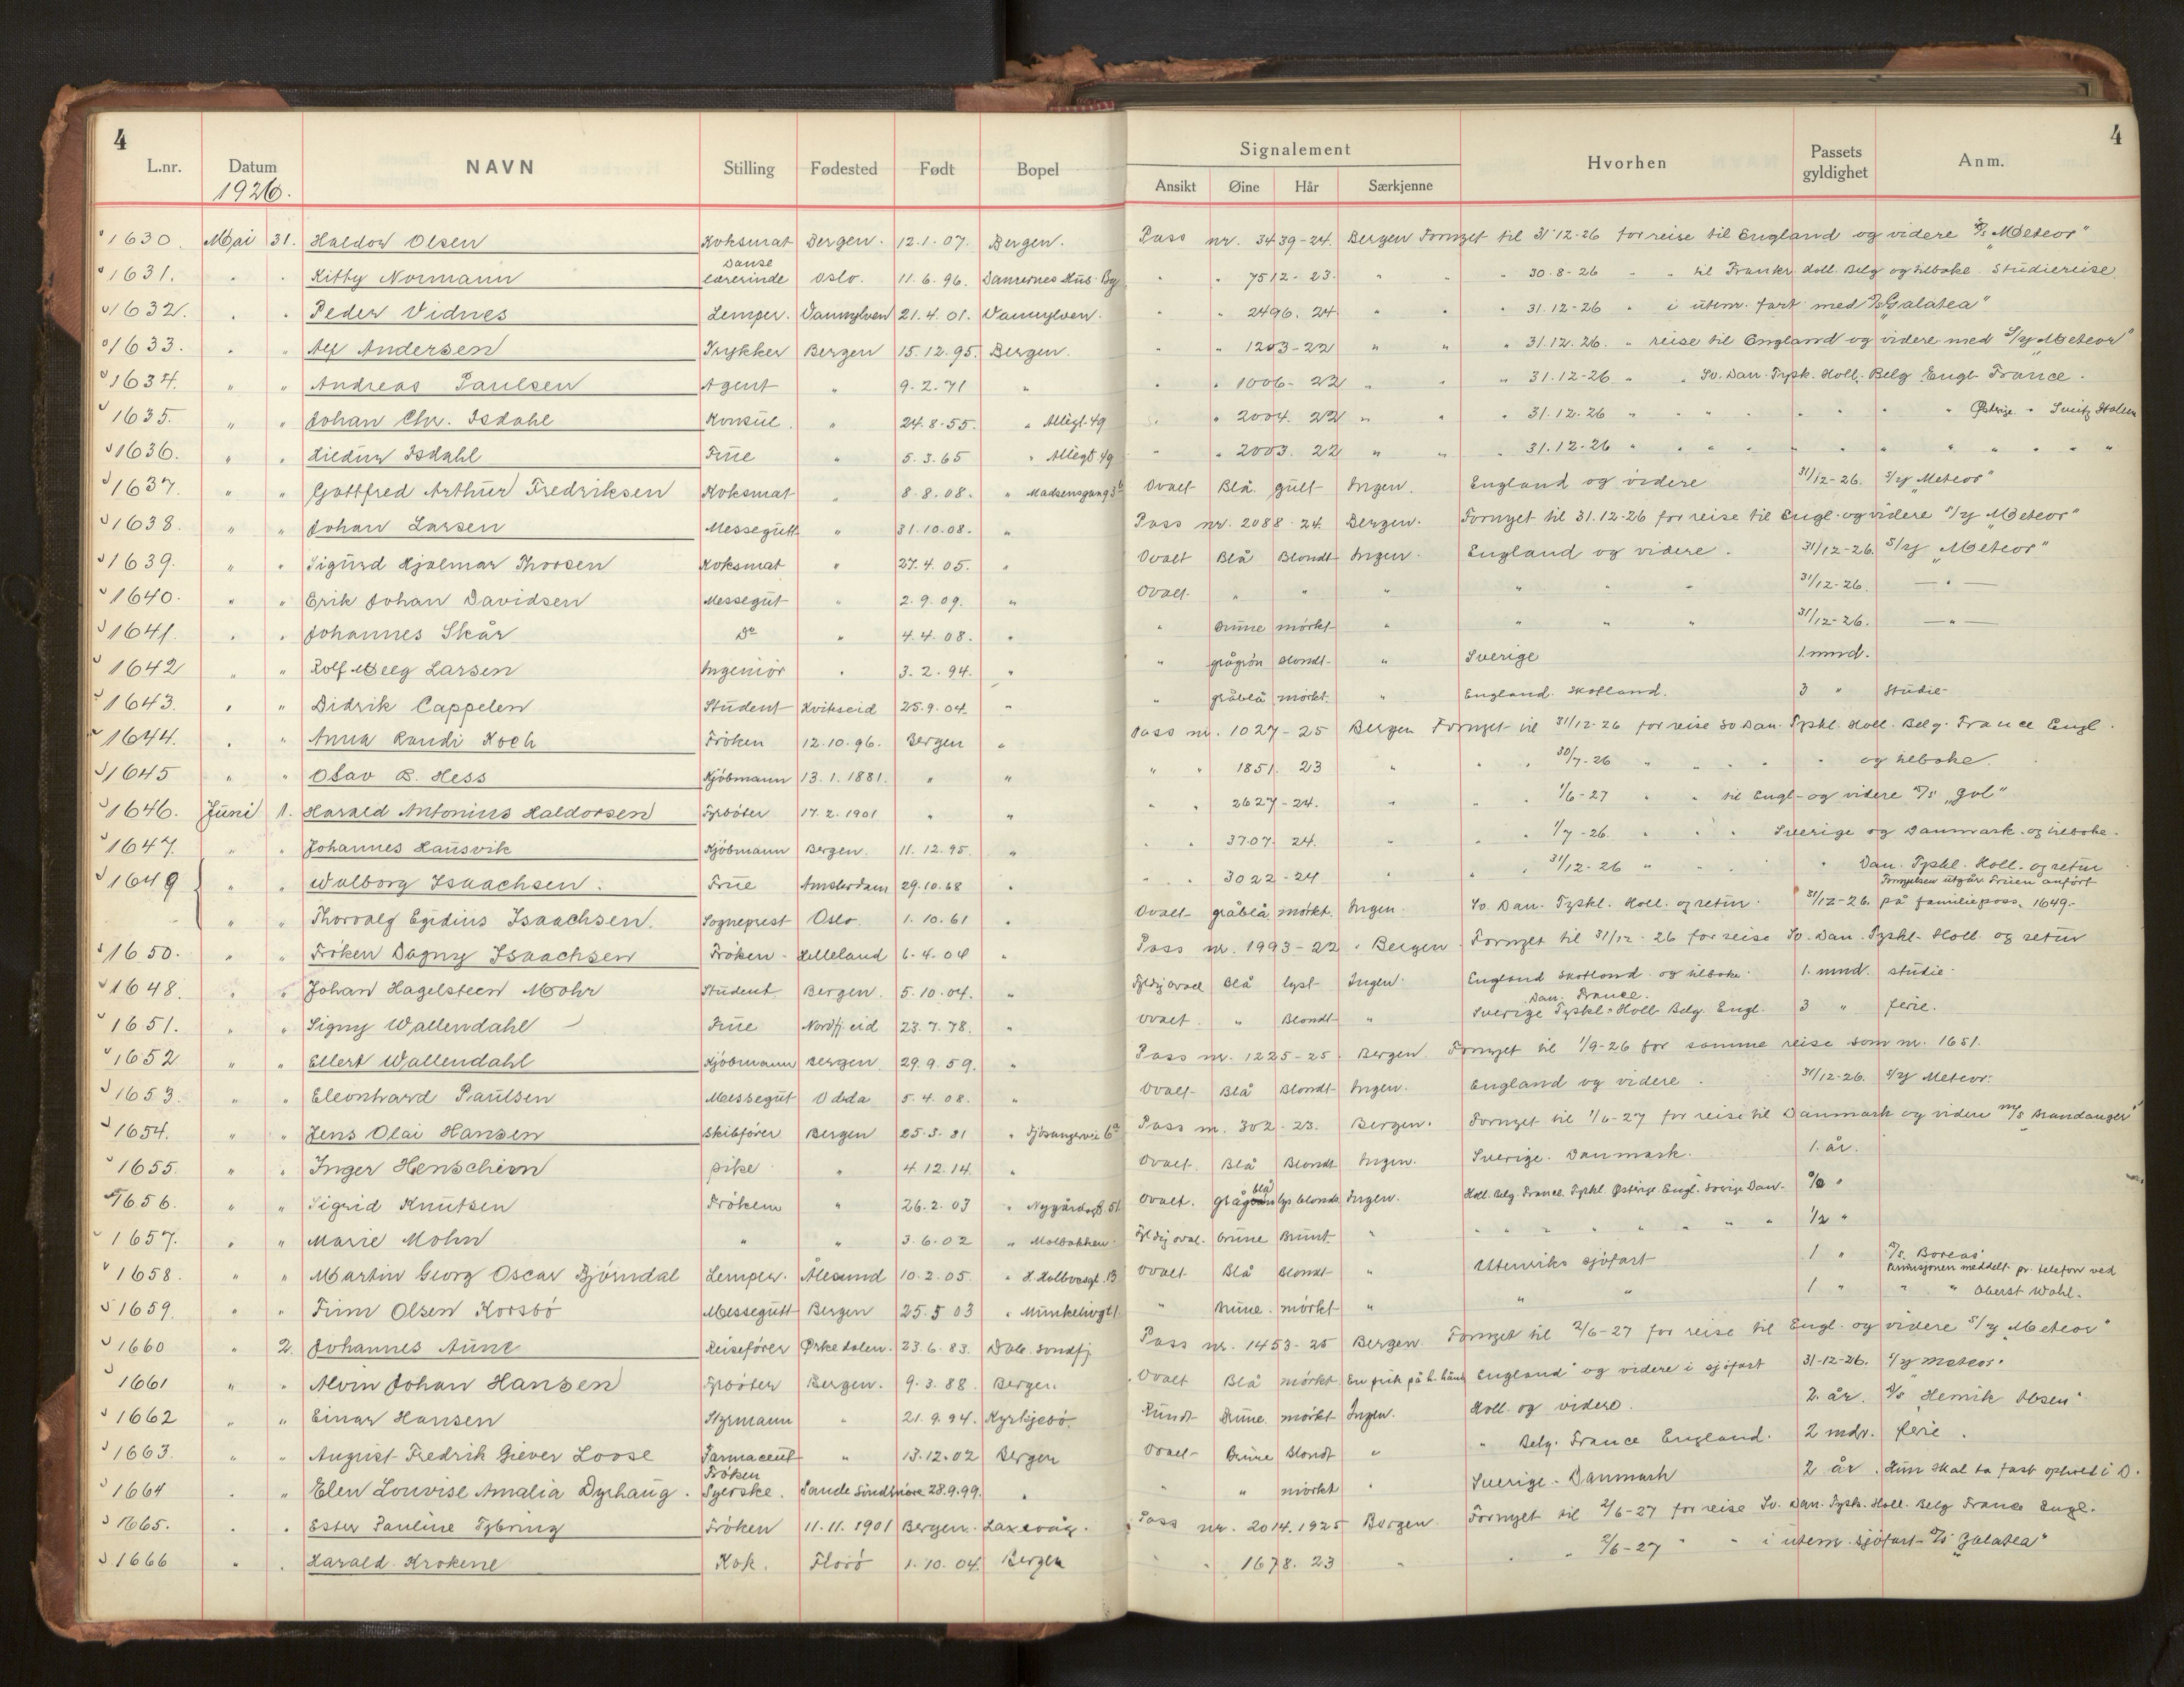 4
L.nr. Datum NAVN Stilling Fødested Født Bopel
1926.
1630. Mai 31. Haldor Olsen Koksmat Bergen. 12.1.07. Bergen.
1631. " " Kitty Normann Danse lærerinde Oslo. 11.6.96. Damernes Hus Bg
1632. " " Peder Vidnes Lemper. Vannylven 21.4.01. Vannylven.
1633. " " Alf Andersen Trykker Bergen 15.12.95. Bergen.
1634. " " Andreas Paulsen Agent " 9.2.71 "
1635. " " Johan Chr. Isdahl Konsul. " 24.8.55. " Allégt. 49
1636. " " Isdahl Frue " 5.3.65 " Allégt 49
1637. " " Gottfred Arthur Fredriksen Koksmat " 8.8.08. " Madsensgang 3b
1638. " " Johan Larsen Messegutt " 31.10.08. "
1639. " " Sigurd Hjalmar Thorsen Koksmat " 27.4.05. "
1640. " " Erik Johan Davidsen Messegut " 2.9.09. "
1641. " " Johannes Skår Do " 4.4.08. "
1642 " " Rolf Meeg Larsen Ingeniør " 3.2.94. "
1643. " " Didrik Cappelen Student Kvitseid 25.9.04. "
1644. " " Anna Randi Koch Frøken 12.10.96. Bergen "
1645 " " Olav B. Hess Kjøbmann 13.1.1881. " "
1646. Juni 1. Harald Antonius Haldorsen Fyrbøter 17.2.1901 " "
1647. " " Johannes Hausvik Kjøbmann Bergen. 11.12.95. "
1649 " " Walborg Isaachsen. Frue Amsterdam 29.10.68 "
" " Thorvalg Egidius Isaachsen. Sogneprest Oslo. 1.10.61 "
1650. " " Frøken Dagny Isaachsen Frøken Helleland 6.4.04 "
1648. " " Johan Hagelsteen Mohr Student Bergen. 5.10.04. "
1651. " " Signy Wallendahl Frue Nordfj.eid 23.7.78. "
1652 " " Ellert Wallendahl Kjøbmann Bergen. 29.9.59. "
1653. " " Eleonhard Paulsen Messegut Odda 5.4.08. "
1654. " " Jens Olai Hansen Skibsfører Bergen 25.3.81 " Fjøsangervei 6a
1655. " " Inger Henschien pike " 4.12.14. "
1656. " " Sigrid Knutsen Frøken " 26.2.03 " Nygårdsgt 51
1657. " " Marie Mohn " " 3.6.02 " Møllbakken
1658. " " Martin Georg Oscar Bjørndal Lemper. Ålesund 10.2.05. " 13
1659. " " Finn Olsen Korsbø Messegutt Bergen 25.5.03 " Munkelivgt 1.
1660 " 2. Johannes Aune Reisefører Ørkedalen. 23.6.83. Dale. Søndfj.
1661 " " Alvin Johan Hansen Fyrbøter Bergen. 9.3.88. Bergen.
1662 " " Einar Hansen Styrmann " 21.9.94. Kyrkjebø.
1663. " " August Fredrik Giever Loose Farmaceut " 13.12.02 Bergen
1664 " " Elen Louvise Amalia Dyrhaug. Frøken Syerske. Sande Sündmøre 28.9.99. "
1665. " " Ester Pauline Tybring Frøken 11.11.1901 Bergen. Laxevåg.
1666 " " Harald Krokene Kok. Florø 1.10.04. Bergen
4
Signalement Hvorhen Passets gyldighet Anm.
Ansikt Øine Hår Særkjenne
Pass nr. 3439-24. Bergen Fornyet til 31-12-26 for reise til England og videre "Meteor"
" " 7512-23. " " 30-8-26 " " til Frankr. Holl. Belg og tilbake. Studiereise
" " 2496.24. " " 31.12-26 " i utenr. fart med "Galatea"
" " 1203-22 " " " 31.12.26. " reise til England og videre med S/y "Meteor"
" " 1006-22 " " " 31.12-26 " " Sv. Dan. Tysk. Holl. Belg Engl. France.
" " 2004.22 " " " 31.12-26 " " " " " " " Østrige. " Sveitz Italien
" " 2003.22 " " " 31.12-26 " " " " " " " " " " "
Ovalt Blå. gult Ingen. England og videre 31/12-26. S/y "Meteor"
Pass nr. 2088.24. Bergen. Fornyet til 31.12-26 for reise til Engl. og videre S/y "Meteor"
Ovalt Blå Blondt Ingen. England og videre. 31/12-26. S/y "Meteor"
Ovalt. " " " " " " 31/12-26. — " —
" Brune mørkt " " " " 31/12-26. — " —
" grågrøn blondt " Sverige 1. mnd.
" gråblå mørkt. " England. Skotland. 3 " Studie-
Pass nr. 1027-25 Bergen Fornyet til 31/12-26 for reise Sv Dan. Tyskl. Holl. Belg. France Engl.
" " 1851.23 " " " 30/7-26 " " " " og tilbake.
" " 2627-24. " " " 1/6-27 " " til Engl. og videre D/S "Gol"
" " 3707.24. " " " 1/7-26. " " " Sverige og Danmark. og tilbake.
" " 3022-24 " " " 31/12-26 " " " " Dan. Tyskl. Holl. og retur
Fornyelsen utgår. Fruen anført
Ovalt gråblå mørkt. Ingen. Sv. Dan. Tyskl. Holl. og retur. 31/12-26. på familiepass. 1649.-
Pass nr. 1993-22. Bergen. Fornyet til 31/12-26 for reise Sv. Dan. Tyskl. Holl og retur
Fyldig ovael Blå lyst Ingen. England Skotland og tilbake. 1. mnd. studie.
Ovalt. " Blondt " Sverige Dan. France. Tyskl. Holl. Belg. Engl. 3 " ferie.
Pass nr. 1225-25. Bergen Fornyet til 1/9-26 for samme reise som nr. 1651.
Ovalt Blå Blondt Ingen. England og videre. 31/12-26. S/y Meteor.
Pass nr. 302-23. Bergen. Fornyet til 1/6-27 for reise til Danmark og videre m/s "Brandanger"
Ovalt. Blå Blondt Ingen. Sverige. Danmark. 1. år.
Ovalt. grå blå lys blonde Ingen. Holl. Belg. France. Tyskl. Østrige. Engl. Sverige Dan. "
Fyldig oval. brune Brunt " " " " " " " " " 1/2 "
Ovalt Blå Blondt " Utenriks sjøfart 1 " D/S. Boreas
" brune. mørkt " " " 1 " meddelt pr. telefon ved " " Oberst Wahl.
Pass nr. 1453-25 Bergen. Fornyet til 2/6-27 for reise til Engl. og videre S/y "Meteor"
Ovalt Blå mørkt En prik på h. hånd England og videre i sjøfart 31-12-26. S/y meteor.
Rundt Brune. mørkt Ingen. Holl. og videre. 2 år. D/S "Henrik Ibsen"
Ovalt Brune Blondt " " Belg. France England. 2 mdr. ferie.
" " mørkt " Sverige. Danmark 2 år. Hun skal ta fast ophold i D.
Pass nr. 2014.1925 Bergen. Fornyet til 2/6-27 for reise Sv. Dan. Tysk. Holl. Belg France Engl.
" " 1678.23 " " " 2/6-27 " " i utenr. sjøfart D/S "Galatea"